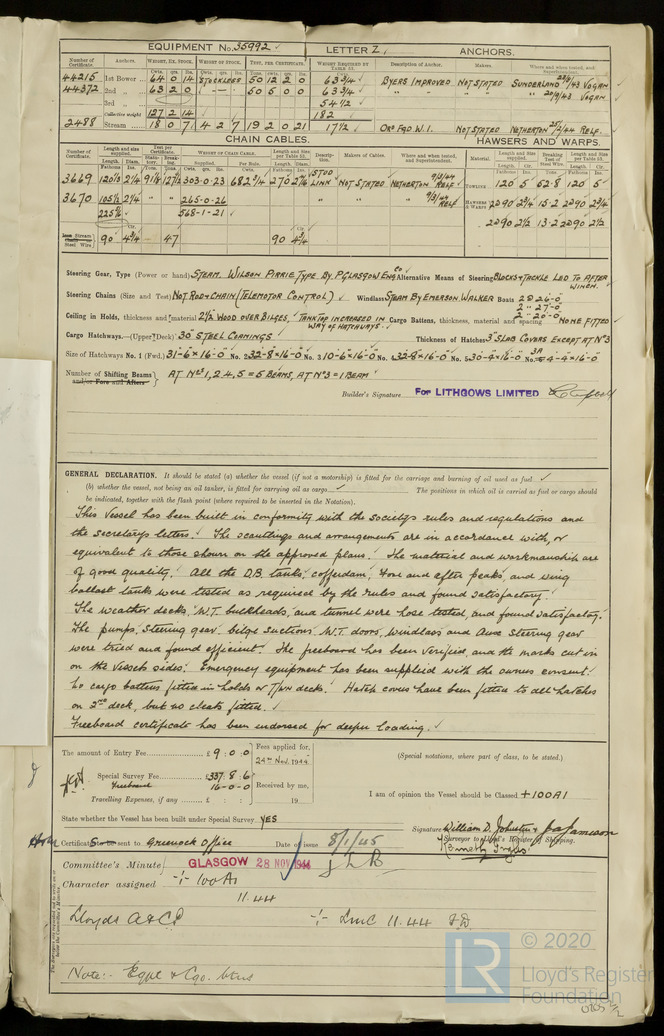 EQUIPMENT No. 35992 LETTER Z, ANCHORS.
Number of Certificate. Anchors. WEIGHT, EX. STOCK. WEIGHT OF STOCK. TEST, PER CERTIFICATE. WEIGHT REQUIRED BY TABLE 53. Description of Anchor. Makers. Where and when tested, and Superintendent.
44215 1st Bower 64 0 14 STOCKLESS 50 12 2 0 63 3/4 BYERS IMPROVED NOT STATED SUNDERLAND /43 VOGAN
44372 2nd „ 63 2 0 50 5 0 0 63 3/4 „ „ „ „ /43 VOGAN
3rd „ 54 1/2
Collective weight 127 2 14 182
2488 Stream 18 0 7 4 2 7 19 2 0 21 17 1/2 ORD FGD W.I. NOT STATED NETHERTON /44 RELF.
CHAIN CABLES. HAWSERS AND WARPS.
3669 120 1/2 2 1/4 91 1/8 127 1/2 303-0-23 682 3/4 270 2 1/16 STUD LINK NOT STATED NETHERTON 9/3/44 RELF TOWLINE 120 5 52·8 120 5
3670 105 1/2 2 1/4 „ „ 265-0-26 „ „ „ 9/3/44 RELF HAWSERS & WARPS 2@90 2 3/4 15·2 2@90 2 3/4
225 568-1-21 2@90 2 1/2 13·2 2@90 2 1/2
Stream Steel Wire 90 4 3/4 47 90 4 3/4
Steering Gear, Type (Power or hand) STEAM. WILSON PIRRIE TYPE BY P GLASGOW ENG CO Alternative Means of Steering BLOCKS & TACKLE LED TO AFTER WINCH.
Steering Chains (Size and Test) NOT ROD & CHAIN (TELEMOTOR CONTROL) Windlass STEAM BY EMERSON WALKER Boats 2 @ 26-0
2 „ 27-0
2 „ 20-0
Ceiling in Holds, thickness and material 2 1/2 WOOD OVER BILGES, TANKTOP INCREASED IN WAY OF HATCHWAYS. Cargo Battens, thickness, material and spacing NONE FITTED
Cargo Hatchways.—(Upper Deck) 30" STEEL COAMINGS Thickness of Hatches 3" SLAB COVERS EXCEPT AT No 3
Size of Hatchways No. 1 (Fwd.) 31-6 × 16-0 No. 2 32-8 × 16-0 No. 3 10-6 × 16-0 No. 4 32-8 × 16-0 No. 5 30-4 × 16-0 No. 3A 4-4 × 16-0
Number of Shifting Beams and/or Fore and Afters AT Nos 1, 2, 4, 5 = 5 BEAMS, AT No 3 = 1 BEAM
Builder's Signature FOR LITHGOWS LIMITED
GENERAL DECLARATION. It should be stated (a) whether the vessel (if not a motorship) is fitted for the carriage and burning of oil used as fuel
(b) whether the vessel, not being an oil tanker, is fitted for carrying oil as cargo The positions in which oil is carried as fuel or cargo should
be indicated, together with the flash point (where required to be inserted in the Notation).
This Vessel has been built in conformity with the societys rules and regulations and
the secretarys letters. The scantlings and arrangements are in accordance with, or
equivalent to those shown on the approved plans. The material and workmanship are
of good quality. All the D.B. tanks, cofferdam, Fore and after peaks, and wing
ballast tanks were tested as required by the rules and found satisfactory.
The weather decks, W.T. bulkheads, and tunnel were hose tested, and found satisfactory.
The pumps, steering gear, bilge suctions, W.T. doors, windlass and Aux steering gear
were tried and found efficient. The freeboard has been verified, and the marks cut in
on the vessels sides. Emergency equipment has been supplied with the owners consent.
No cargo battens fitted in holds or T/wn decks. Hatch covers have been fitted to all hatches
on 2nd deck, but no cleats fitted.
Freeboard certificate has been endorsed for deeper loading.
The amount of Entry Fee £ 9 : 0 : 0 Fees applied for, 24th Nov. 1944
(Special notations, where part of class, to be stated.)
Special Survey Fee £337 : 8 : 6
Freeboard 16-0-0 Received by me,
Travelling Expenses, if any £ : : 19
I am of opinion the Vessel should be Classed +100A1
State whether the Vessel has been built under Special Survey YES
Signature William D. Johnston & J A Jameson
Surveyor to Lloyd's Register of Shipping.
Certificate to be sent to Greenock Office Date of issue 8/1/45
Committee's Minute GLASGOW 28 NOV 1944
Character assigned + 100A1
11.44
Lloyds A&CP + LMC 11.44 F.D.
Note:- Eqpt & Cgo. btns
© 2020
LR
Lloyd's Register
Foundation